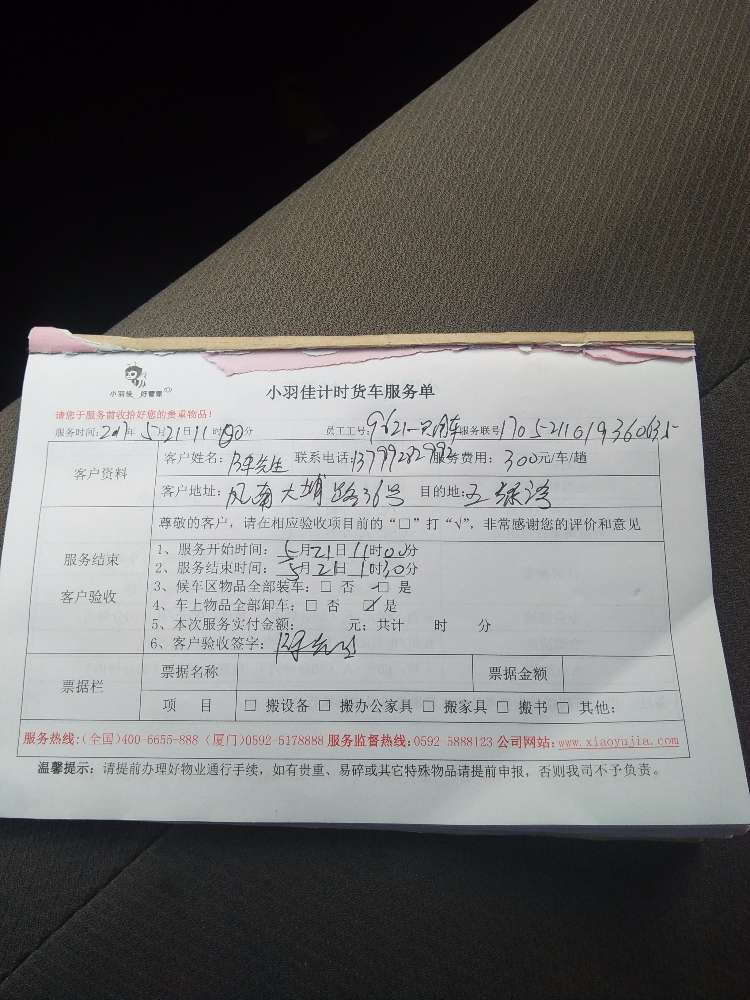 小羽佳 好管家
小羽佳计时货车服务单
请您于服务前收拾好您的贵重物品!
服务时间: 2017年 5月21日11时00分 员工工号: 9621 服务联号
客户资料
客户姓名: 陈先生 联系电话: 服务费用: 300元/车/趟
客户地址: 大埔路36号 目的地: 五缘湾
尊敬的客户,请在相应验收项目前的“□”打“√”,非常感谢您的评价和意见
服务结束
客户验收
1、服务开始时间: 5月21日11时00分
2、服务结束时间: 5月21日1时30分
3、候车区物品全部装车: □ 否 ☑ 是
4、车上物品全部卸车: □ 否 ☑ 是
5、本次服务实付金额: 元; 共计 时 分
6、客户验收签字: 陈先生
票据栏
票据名称 票据金额
项 目 □ 搬设备 □ 搬办公家具 □ 搬家具 □ 搬书 □ 其他:
服务热线:(全国)400-6655-888 (厦门)0592-5178888 服务监督热线:0592 5888123 公司网站:www.xiaoyujia.com
温馨提示: 请提前办理好物业通行手续,如有贵重、易碎或其它特殊物品请提前申报,否则我司不予负责。